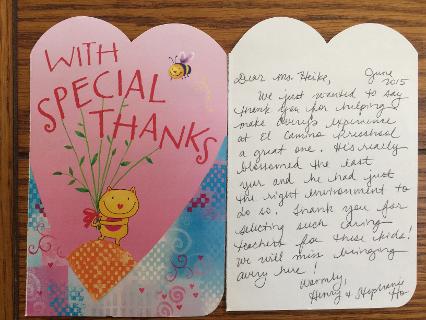 WITH
SPECIAL
THANKS
Dear Ms. Heike, June
2015
We just wanted to say
thank you for helping
make Avery's experience
at El Camino Preschool
a great one. He's really
blossomed the last
year and he had just
the right environment to
do so. Thank you for
selecting such caring
teachers for these kids!
We will miss bringing
Avery here!
Warmly,
Henry & Stephanie
Ho